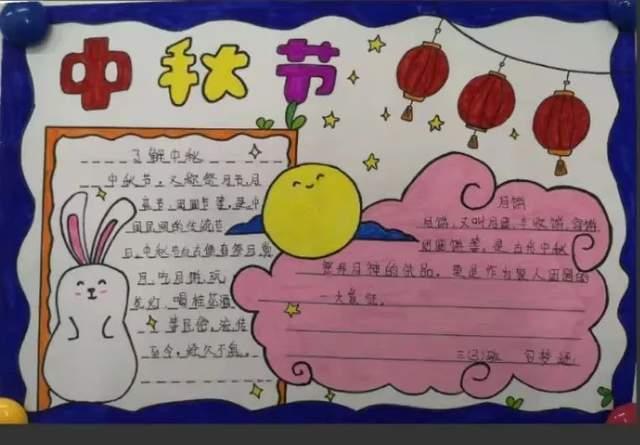 中秋节
了解中秋
中秋节，又称祭月节、月
节、团圆节等，是中
国民间的传统节
日。中秋节自古便有祭月、赏
月、吃月饼、玩
花灯、喝桂花酒
等民俗，流传
至今，经久不息。
月饼
月饼，又叫月团、丰收饼、宫饼、
团圆饼等，是古代中秋
祭拜月神的供品。
一大象征。
三(3)班